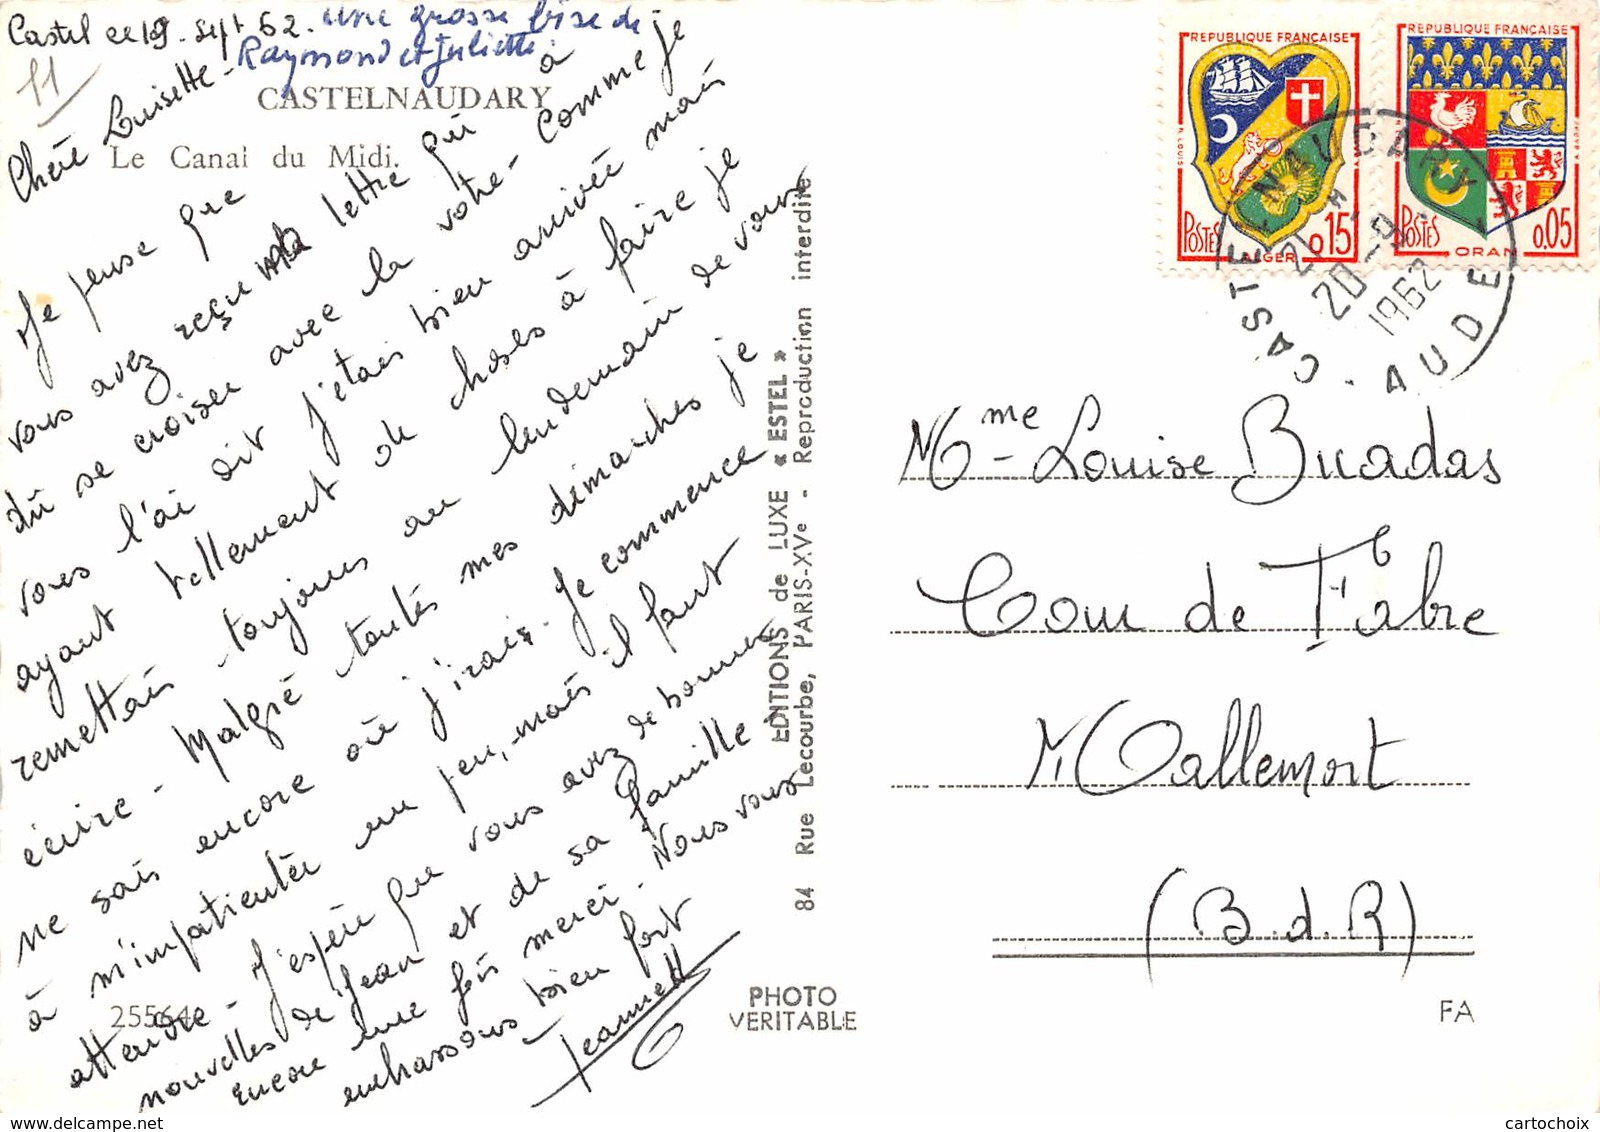 Castel ce 19. Sept 62. une grosse bise de
Raymond et Juliette.
11
CASTELNAUDARY
Le Canal du Midi.
Chère Louisette -
Je pense que
vous avez reçu ma lettre qui a
dû se croiser avec la votre - Comme je
vous l'ai dit j'étais bien arrivée mais
ayant tellement de choses à faire je
remettais toujours au lendemain de vous
écrire - Malgré toutes mes démarches je
ne sais encore où j'irais - Je commence
à m'impatienter un peu, mais il faut
attendre - J'espère que vous avez de bonnes
nouvelles de Jean et de sa famille -
Encore une fois merci - Nous vous
embrassons bien fort
Jeannette
25564
EDITIONS de LUXE « ESTEL »
84 Rue Lecourbe, PARIS-XVe - Reproduction interdite
PHOTO
VERITABLE
REPUBLIQUE FRANÇAISE
POSTES
0,15
ALGER
REPUBLIQUE FRANÇAISE
POSTES
0,05
ORAN
CASTELNAUDARY
20-9
1962
AUDE
Mme Louise Buadas
Cour de Fabre
Mallemort
(B.d.R)
FA
cartochoix